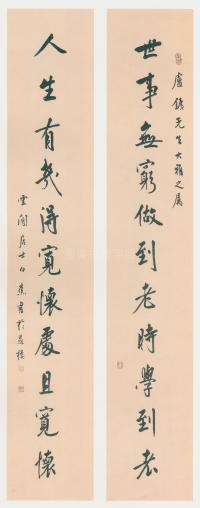 世事無窮做到老時學到老
盧鏡先生大雅之屬
人生有幾得寬懷處且寬懷
雲間居士白蕉書於